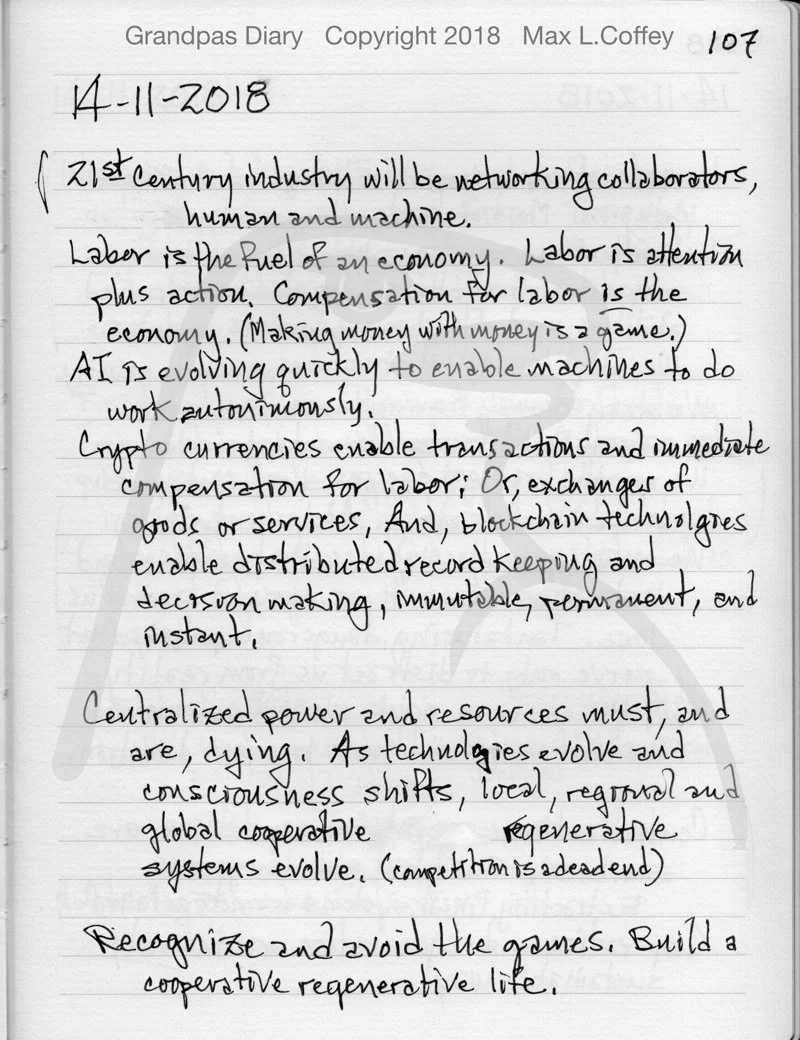 Grandpas Diary Copyright 2018 Max L.Coffey
107
14-11-2018
21st Century industry will be networking collaborators,
human and machine.
Labor is the fuel of an economy. Labor is attention
plus action. Compensation for labor is the
economy. (Making money with money is a game.)
AI is evolving quickly to enable machines to do
work autonimously.
Crypto currencies enable transactions and immediate
compensation for labor; Or, exchanges of
goods or services, And, blockchain technolgies
enable distributed record keeping and
decision making, immutable, permanent, and
instant.
Centralized power and resources must, and
are, dying. As technologies evolve and
consciousness shifts, local, regional and
global cooperative regenerative
systems evolve. (competition is a dead end)
Recognize and avoid the games. Build a
cooperative regenerative life.